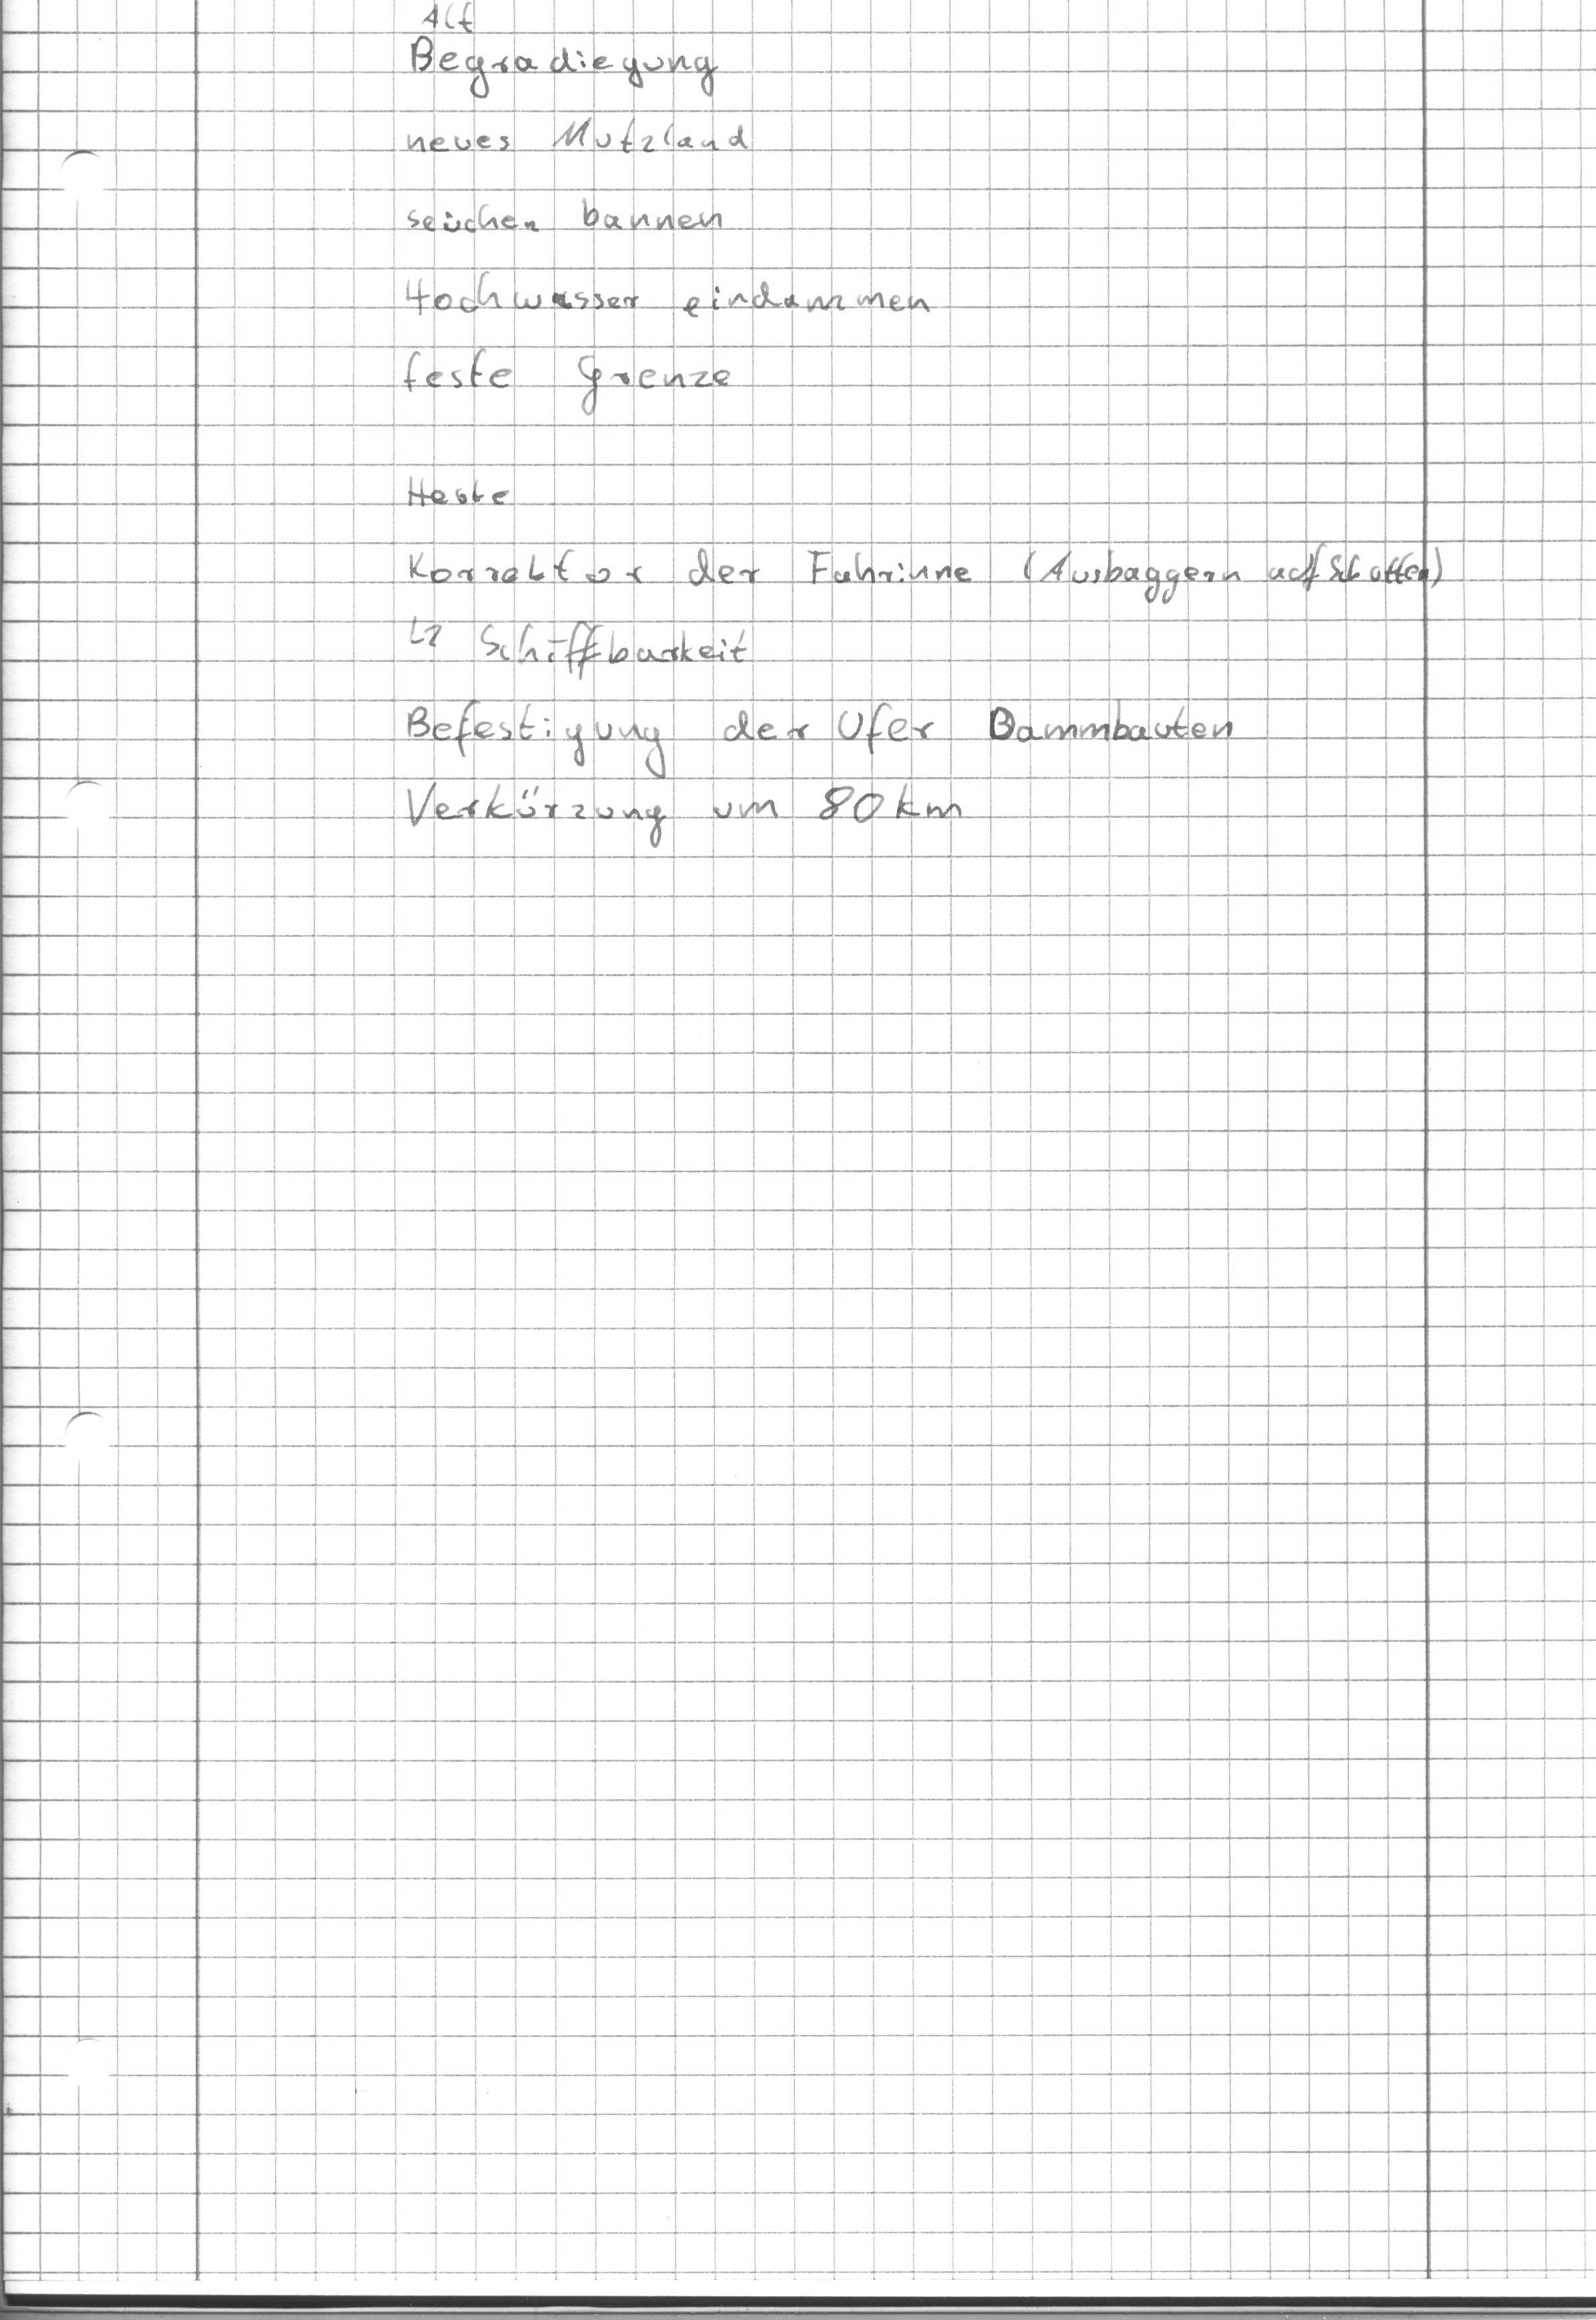 Alt
Begradiegung
neues Nutzland
seuchen bannen
Hochwasser eindammen
feste Grenze
Heute
Korrektur der Fahrinne (Ausbaggern auf
↳ Schiffbarkeit
Befestigung der Ufer Dammbauten
Verkürzung um 80 km